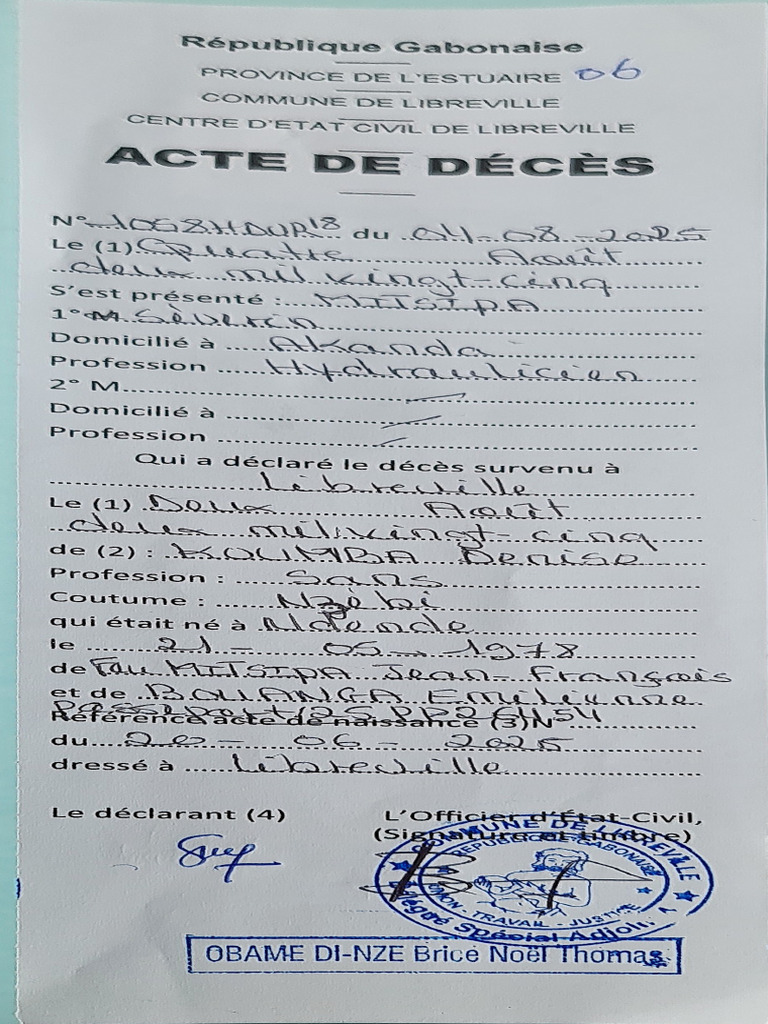 République Gabonaise
PROVINCE DE L'ESTUAIRE 06
COMMUNE DE LIBREVILLE
CENTRE D'ETAT CIVIL DE LIBREVILLE
ACTE DE DÉCÈS
N° du 04-08-2025
Le (1) Quatre Août
deux mil vingt-cinq
S'est présenté : MITSIPA
1° M Sèverin
Domicilié à Akanda
Profession Hydraulicien
2° M.
Domicilié à
Profession
Qui a déclaré le décès survenu à
Libreville
Le (1) Deux Août
deux mil vingt-cinq
de (2) : KOUMBA Denise
Profession : Sans
Coutume : Nzèbi
qui était né à Ndendé
le 21-05-1978
de Feu MITSIPA Jean-François
et de BOUANGA Emilienne
Passeport
Référence acte de naissance (3) N°
du 20-06-2025
dressé à Libreville
Le déclarant (4) L'Officier d'État-Civil,
(Signature et timbre)
COMMUNE DE LIBREVILLE
REPUBLIQUE GABONAISE
UNION - TRAVAIL - JUSTICE
Délégué Spécial Adjoint 1
OBAME DI-NZE Brice Noël Thomas